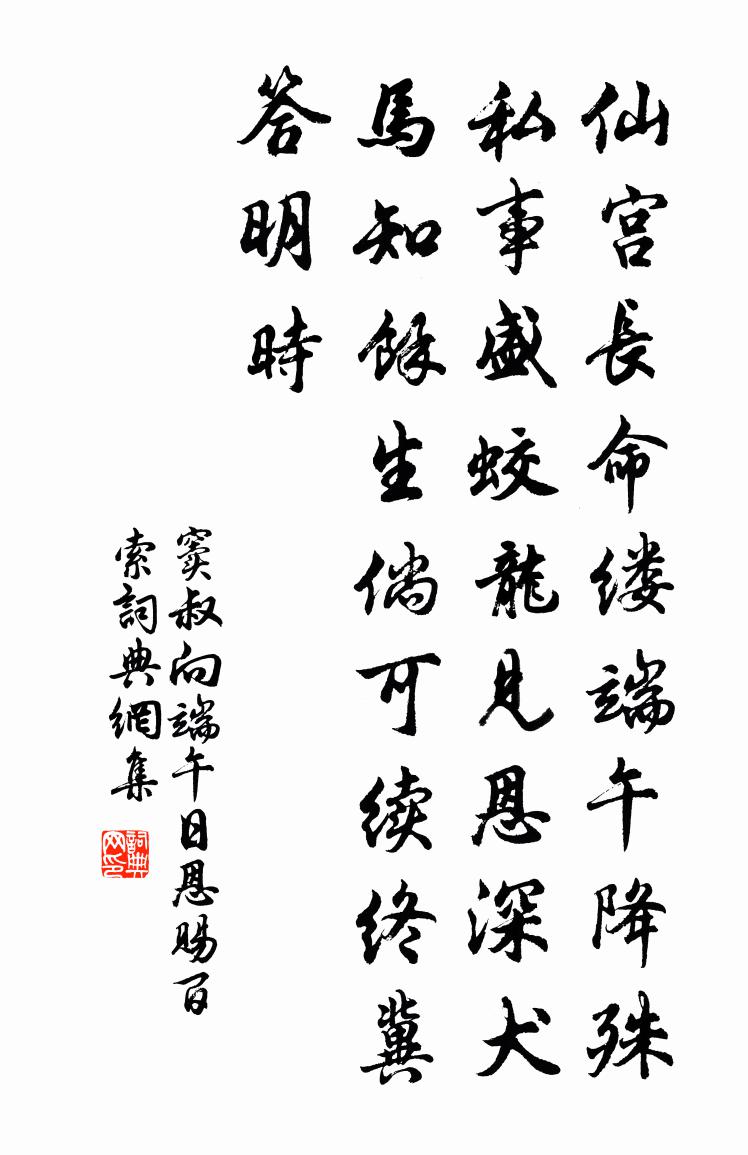 仙宫長命缕端午降殊
私事盛蛟龍見恩深犬
馬知餘生倘可续终冀
答明時
窦叔向端午日恩赐百
索詞典網集
詞典
网印